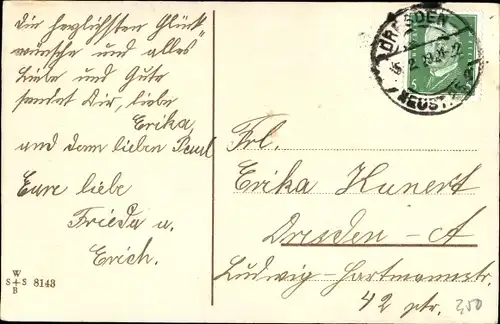 Die herzlichsten Glück-
wünsche und alles
Liebe und Gute
sendet Dir, liebe
Erika,
und dem lieben Paul
Eure liebe
Frieda u.
Erich.
W
S + S 8143
B
DRESDEN
NEUST
5
Frl.
Erika Hunert
Dresden - A
Ludwig-Hartmannstr.
42 ptr.
2,50